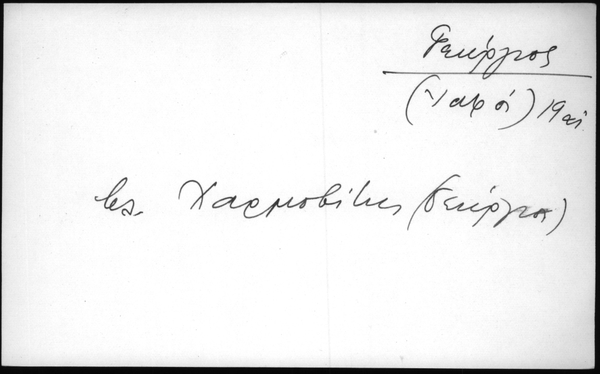 Γεώργιος
(Ψαφοί) 19 αἰ.
βλ. Χαρμοβίτης (Γεώργιος)